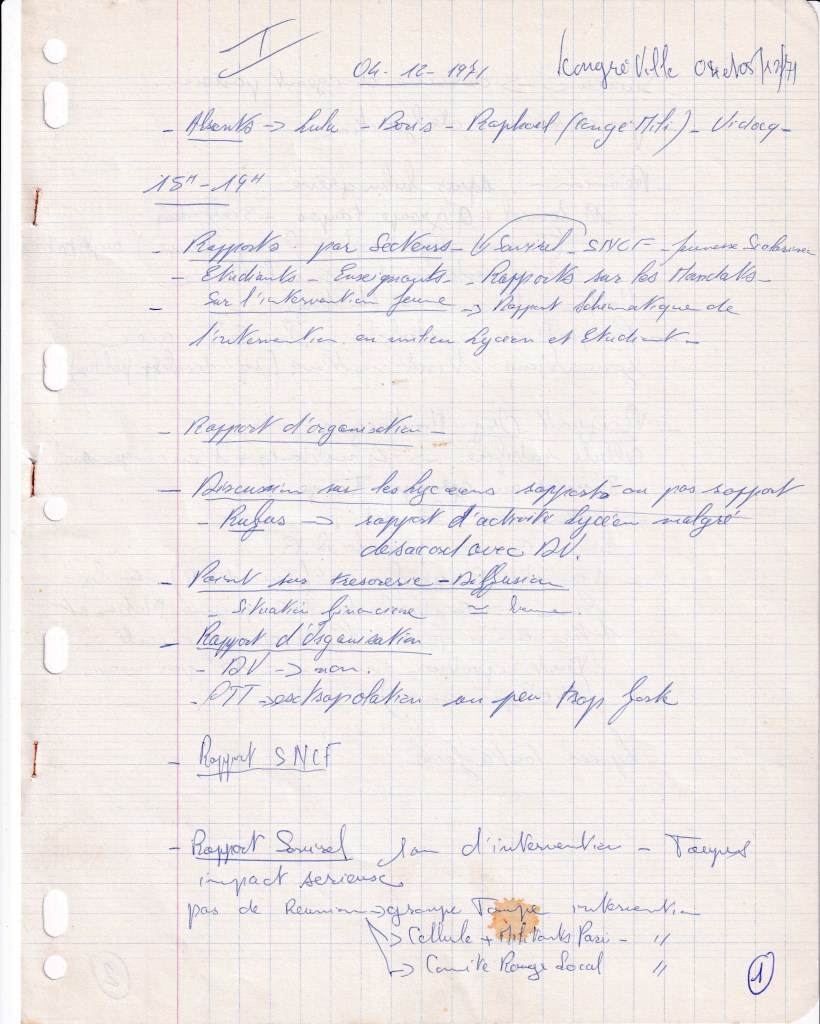 I
04-12-1971 Kongré Ville 04 et 05/12/71
- Absents -> Lulu - Boris - Raphael (congé Mili) - Vidocq -
15H - 19H
- Rapports par Secteurs - Sovirel - SNCF - Jeunesse Scolarisée
- Etudiants - Enseignants - Rapports sur les Mandats -
- Sur l'intervention jeune -> Rapport Schematique de
l'intervention en milieu Lycéen et Etudiant -
- Rapport d'organisation -
- Discussion sur les Lycéens rapport ou pas rapport
- Rufus -> rapport d'activité Lycéen malgré
désacord avec DV.
- Point sur tresorerie - Diffusion
- Situation financiere ≃ bonne.
- Rapport d'Organisation
- DV -> non.
- PTT -> extrapolation un peu trop fort
- Rapport SNCF
- Rapport Sovirel 1 an d'intervention - Taupes
impact serieuse
pas de Reunion -> groupe Taupe intervention
-> Cellule + Militants Pari - "
-> Comité Rouge Local "
1